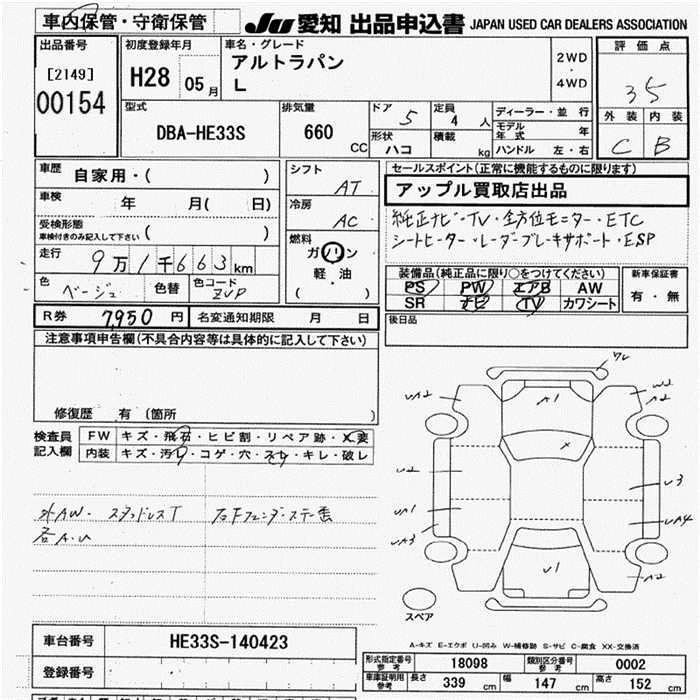 車内保管・守衛保管
JU 愛知 出品申込書 JAPAN USED CAR DEALERS ASSOCIATION
出品番号
[2149]
00154
初度登録年月
H28 05月
車名・グレード
アルトラパン
L
2WD
・
4WD
評価点
35
外装 内装
C B
型式
DBA-HE33S
排気量
660 CC
ドア
5
定員
4人
形状
ハコ
積載
kg
ディーラー・並行
モデル年式 年
ハンドル 左・右
車歴 自家用・( )
車検 年 月( 日)
受検形態
車検付きのみ記入して下さい ( )
走行
9万1千663km
色
ベージュ
色替
色コード
ZVP
シフト
AT
冷房
AC
燃料
ガソリン
軽・油
( )
セールスポイント(正常に機能するものに限ります)
アップル買取店出品
純正ナビ・TV・全方位モニター・ETC
シートヒーター・レーダーブレーキサポート・ESP
装備品(純正品に限り○をつけてください)
PS PW エアB AW
SR ナビ TV カワシート
新車保証書
有・無
後日品
R券 7,950 円 名変通知期限 月 日
注意事項申告欄(不具合内容等は具体的に記入して下さい)
修復歴 有 (箇所 )
検査員
記入欄
FW キズ・飛石・ヒビ割・リペア跡・X要
内装 キズ・汚レ・コゲ・穴・スレ・キレ・破レ
外AW・スタッドレスT 右Fフェンダーステー曲
各A.U
ワレ
UA2
A1
W2
A2
X
U2
U3
UA1
UA4
UA3
U1
A2
スペア
A-キズ E-エクボ U-凹み W-補修跡 S-サビ C-腐食 XX-交換済
車台番号 HE33S-140423
登録番号
形式指定番号参考 18098 類別区分番号参考 0002
車庫証明用参考 長さ 339 cm 幅 147 cm 高さ 152 cm